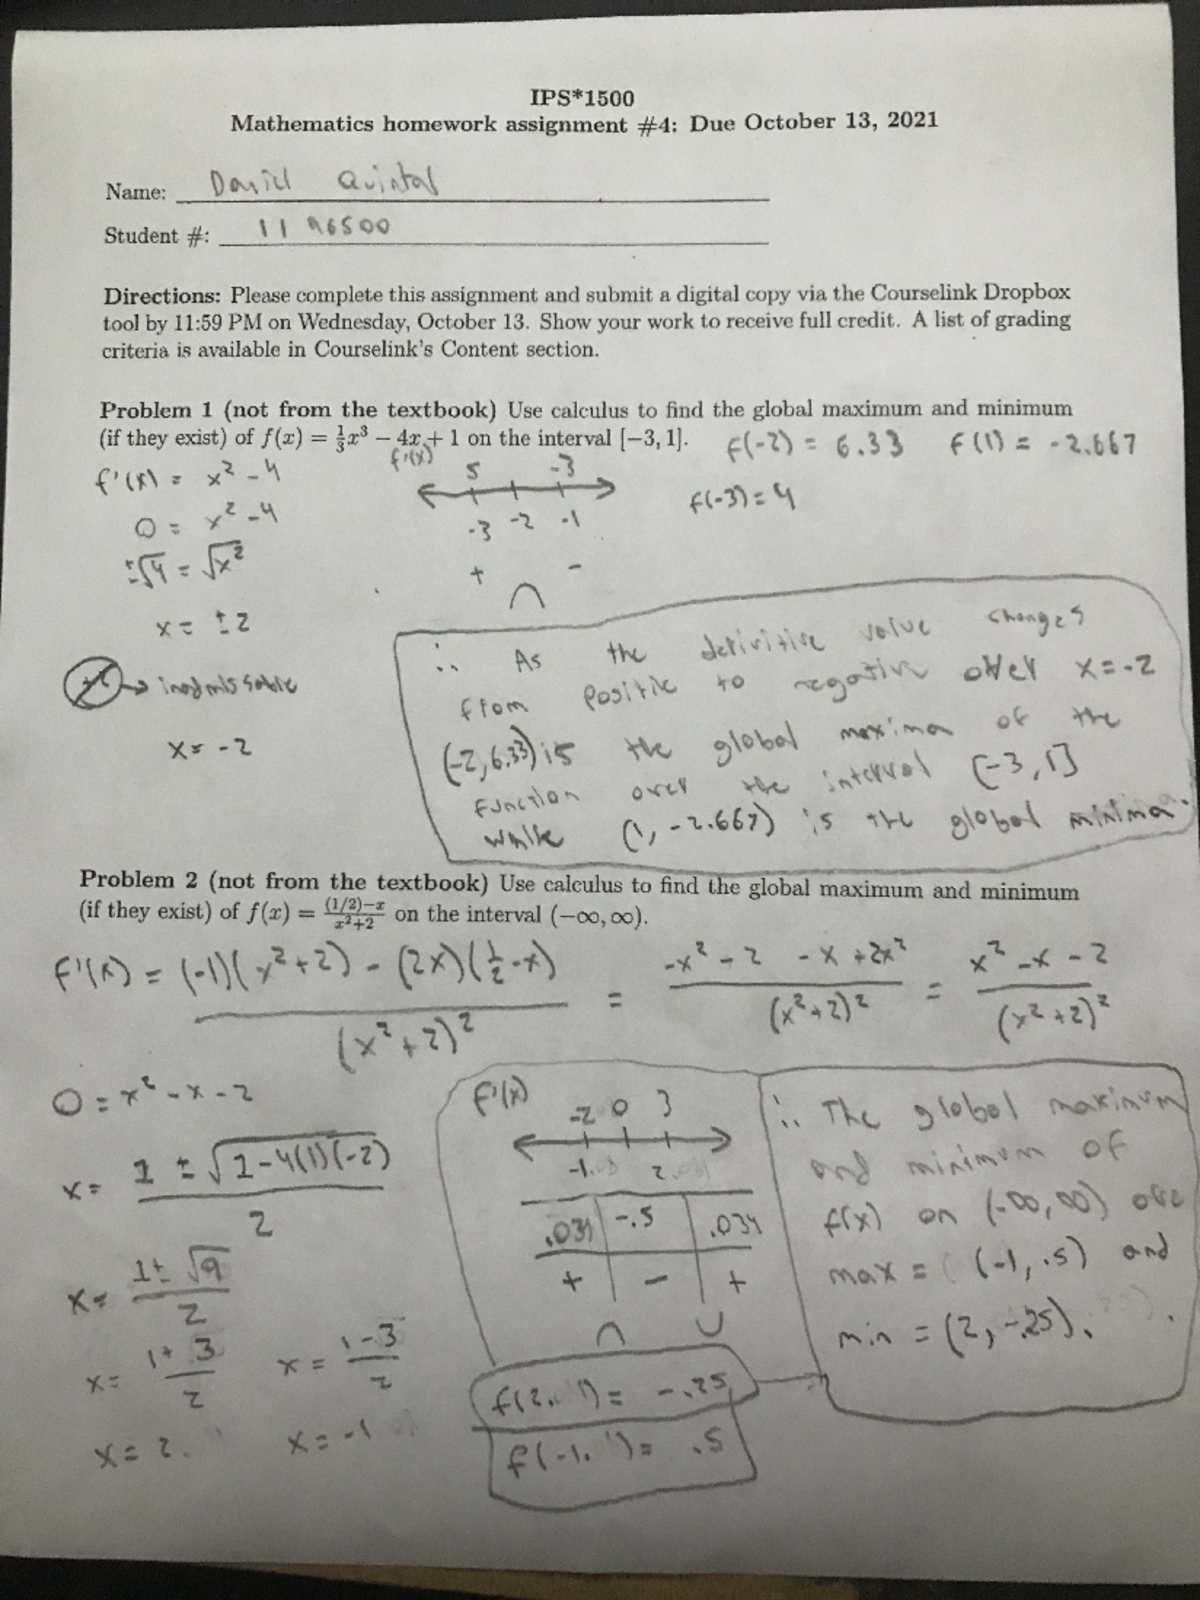 IPS*1500
Mathematics homework assignment #4: Due October 13, 2021
Name: Daniel Quintal
Student #: 1196500
Directions: Please complete this assignment and submit a digital copy via the Courselink Dropbox
tool by 11:59 PM on Wednesday, October 13. Show your work to receive full credit. A list of grading
criteria is available in Courselink's Content section.
Problem 1 (not from the textbook) Use calculus to find the global maximum and minimum
(if they exist) of f(x) = 1/3x³ − 4x + 1 on the interval [−3, 1]. f(-2) = 6.33 f(1) = -2.667
f'(x) = x² - 4
f'(x) 5 -3
f(-3) = 4
0 = x² - 4
-3 -2 -1
±√4 = √x²
+ ∩ -
x = ± 2
→ inadmissable
x = -2
∴ As the derivitive value changes
from positie to negative over x = -2
(-2, 6.33) is the global maxima of the
function over the interval [-3, 1]
while (1, -2.667) is the global minima.
Problem 2 (not from the textbook) Use calculus to find the global maximum and minimum
(if they exist) of f(x) = (1/2)−x / x²+2 on the interval (−∞, ∞).
f'(x) = (-1)(x²+2) - (2x)(1/2-x) / (x²+2)² = -x² - 2 - x + 2x² / (x²+2)² = x² - x - 2 / (x²+2)²
0 = x² - x - 2
x = 1 ± √1-4(1)(-2) / 2
x = 1 ± √9 / 2
x = 1 + 3 / 2 x = 1 - 3 / 2
x = 2 x = -1
f'(x) -2 0 3
-1 2
.034 -.5 .034
+ - +
∩ ∪
f(2) = -.25
f(-1) = .5
∴ The global maximum
and minimum of
f(x) on (-∞, ∞) are
max = (-1, .5) and
min = (2, -.25).